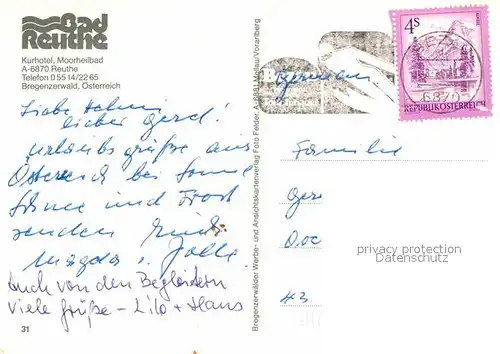 Bad
Reuthe
Kurhotel, Moorheilbad
A-6870 Reuthe
Telefon 0 55 14/22 65
Bregenzerwald, Österreich
Liebe
lieber Gerd!
Urlaubsgrüße aus
Österreich bei Sonne
Schnee und Frost
senden Euch
Magda u.
Auch von den Begleitern
viele Grüße - Lilo + Hans
31
Bregenzerwälder Werbe- und Ansichtskartenverlag Foto Felder, A-6881 Mellau/Vorarlberg
4S
REPUBLIK ÖSTERREICH
6870
Germany
Familie
Ger
Doc
43
privacy protection
Datenschutz